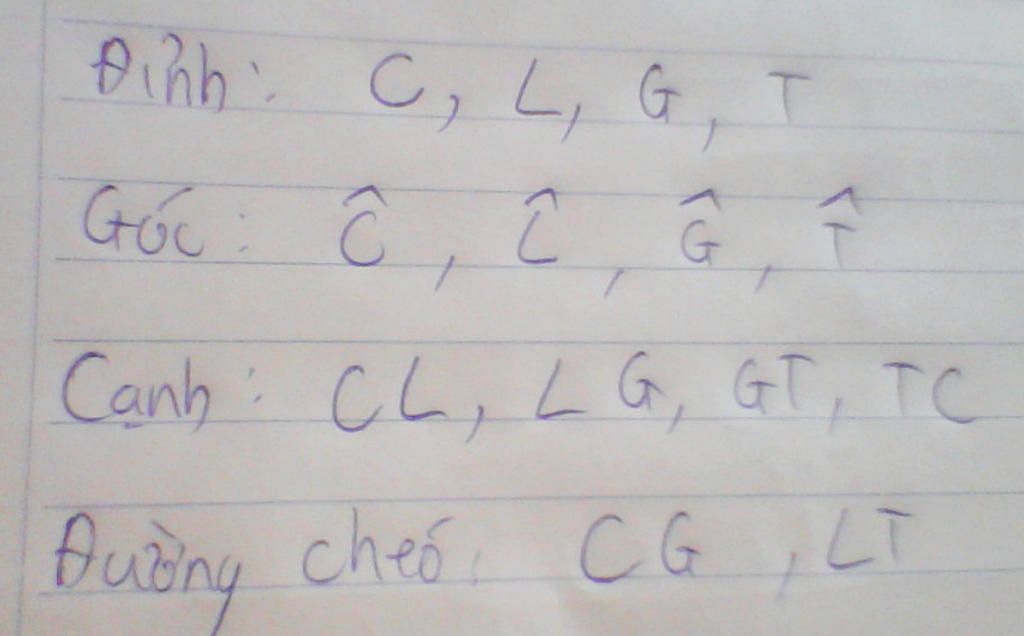 Đỉnh: C, L, G, T
Góc: Ĉ, L̂, Ĝ, T̂
Cạnh: CL, LG, GT, TC
Đường chéo: CG, LT